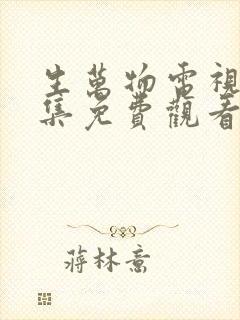 生萬物電視
集免費觀看
蔣林熹